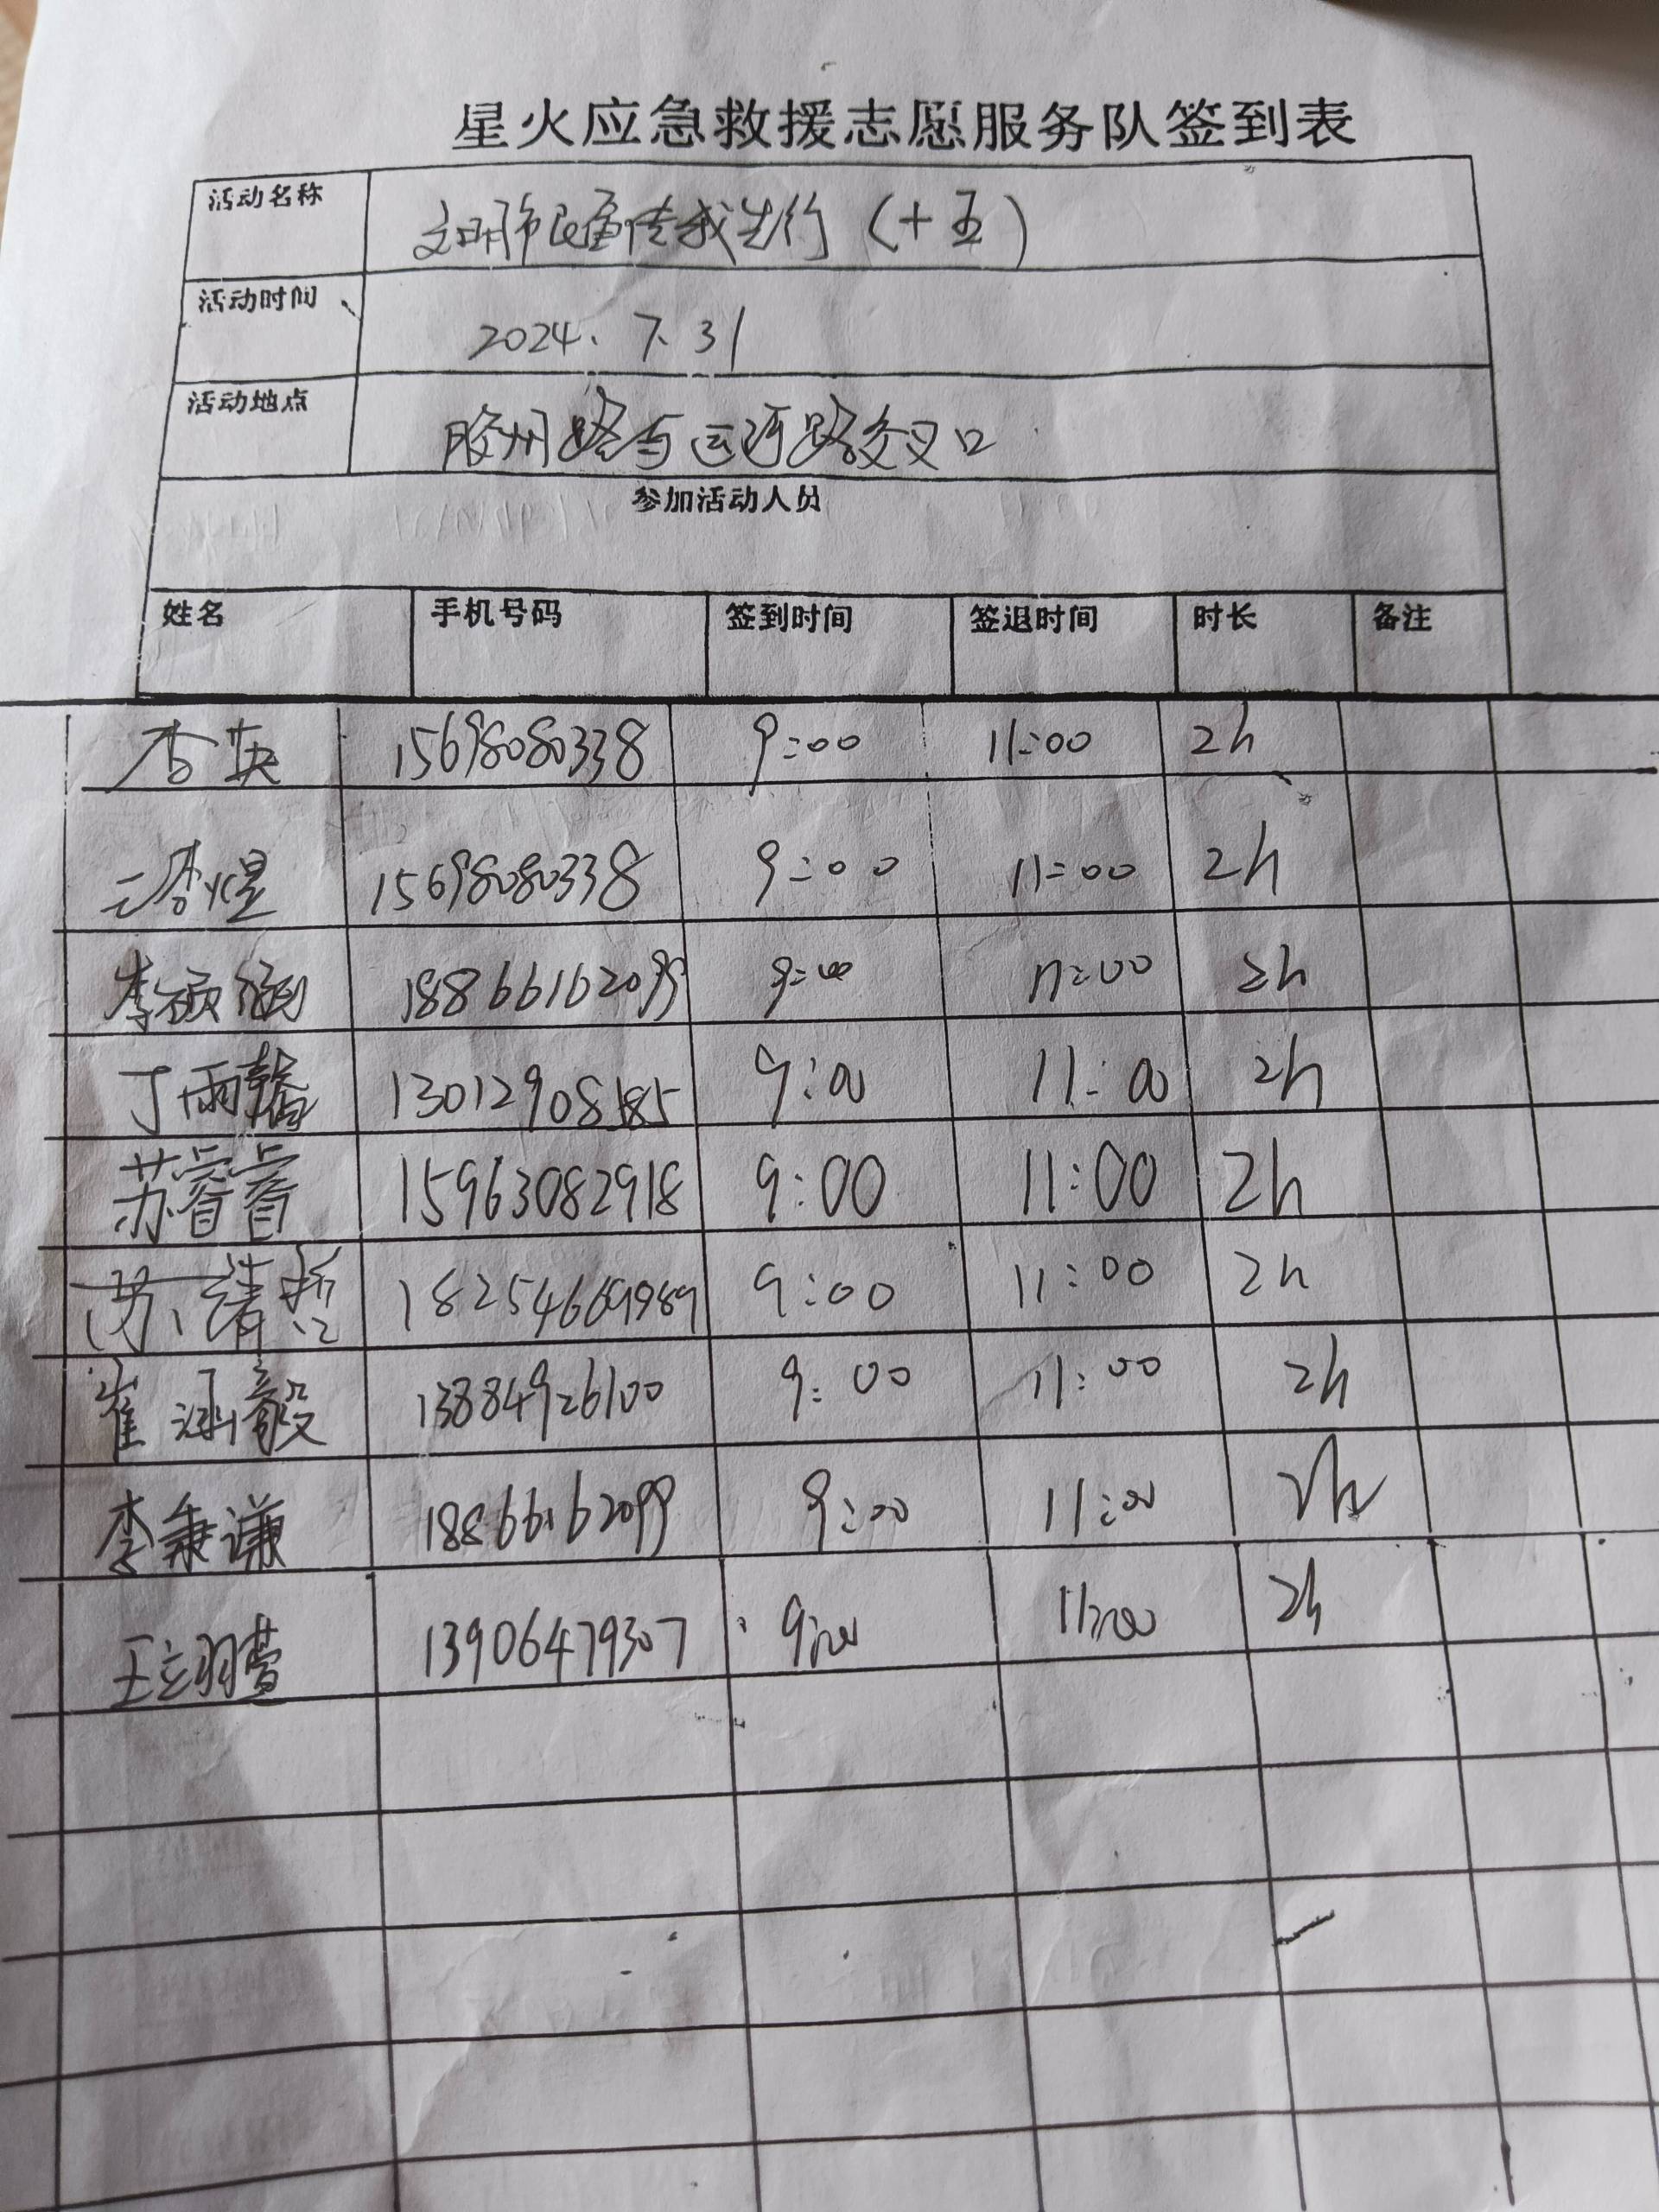 星火应急救援志愿服务队签到表
活动名称 文明市民宣传我先行（十五）
活动时间 2024.7.31
活动地点 胶州路与运河路交叉口
参加活动人员
姓名 手机号码 签到时间 签退时间 时长 备注
李英 15698080338 9:00 11:00 2h
李煜 15698080338 9:00 11:00 2h
李 18866162099 9:00 11:00 2h
丁雨馨 13012908585 9:00 11:00 2h
苏睿睿 15963082918 9:00 11:00 2h
苏清哲 18254669989 9:00 11:00 2h
崔涵毅 13884926100 9:00 11:00 2h
李秉谦 18866162099 9:00 11:00 2h
王翊萱 13906479307 9:00 11:00 2h